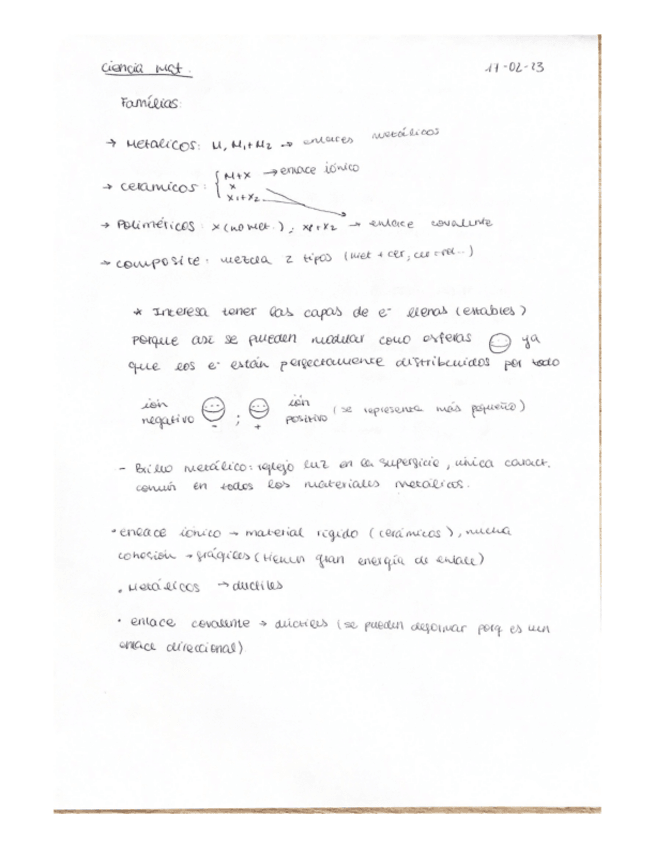 Ciencia mat. 17-02-23
Famílias:
→ Metálicos: M, M₁+M₂ → enlaces metálicos
→ cerámicos: { M+X → enlace iónico
X
X₁+X₂
→ Poliméricos: X (no met.); X₁+X₂ → enlace covalente
→ composite: mezcla 2 tipos (met + cer;
* Interesa tener las capas de e⁻ llenas (estables)
porque así se pueden modular como esferas ya
que los e⁻ están perfectamente distribuidos por todo
ión negativo - ; + ión positivo (se representa más pequeño)
- Brillo metálico: reflejo luz en la superficie, única caract.
común en todos los materiales metálicos.
• enlace iónico → material rígido (cerámicos), mucha
cohesión → frágiles (tienen gran energía de enlace)
• Metálicos → dúctiles
• enlace covalente → dúctiles (se pueden deformar porq es un
enlace direccional)